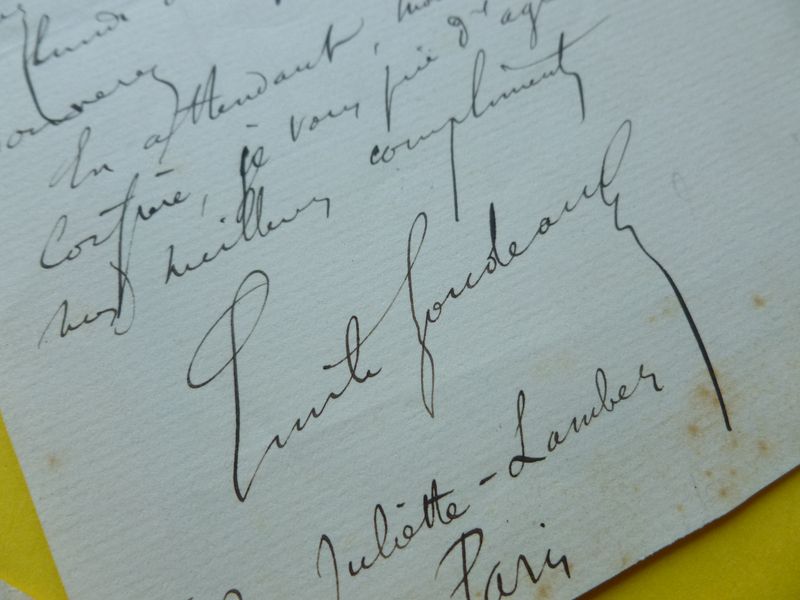 En attendant, mon
confrère, je vous prie d'agr
mes meilleurs compliments
Emile Goudeau
Juliette-Lamber
Paris